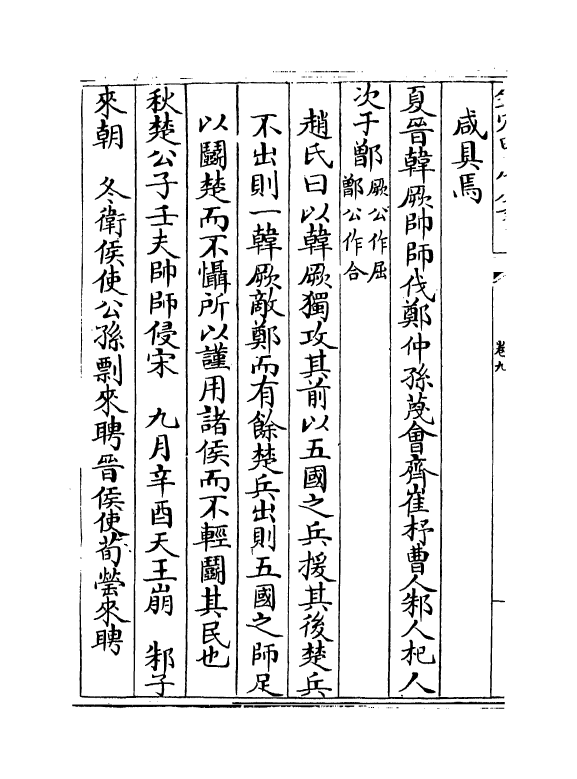 咸具焉
夏晉韓厥帥師伐鄭仲孫蔑會齊崔杼曹人邾人杞人
次于鄫厥公作屈鄫公作合
趙氏曰以韓厥獨攻其前以五國之兵援其後楚兵
不出則一韓厥敵鄭而有餘楚兵出則五國之師足
以鬭楚而不懾所以謹用諸侯而不輕鬭其民也
秋楚公子壬夫帥師侵宋　九月辛酉天王崩　邾子
來朝　冬衛侯使公孫剽來聘晉侯使荀罃來聘
卷九